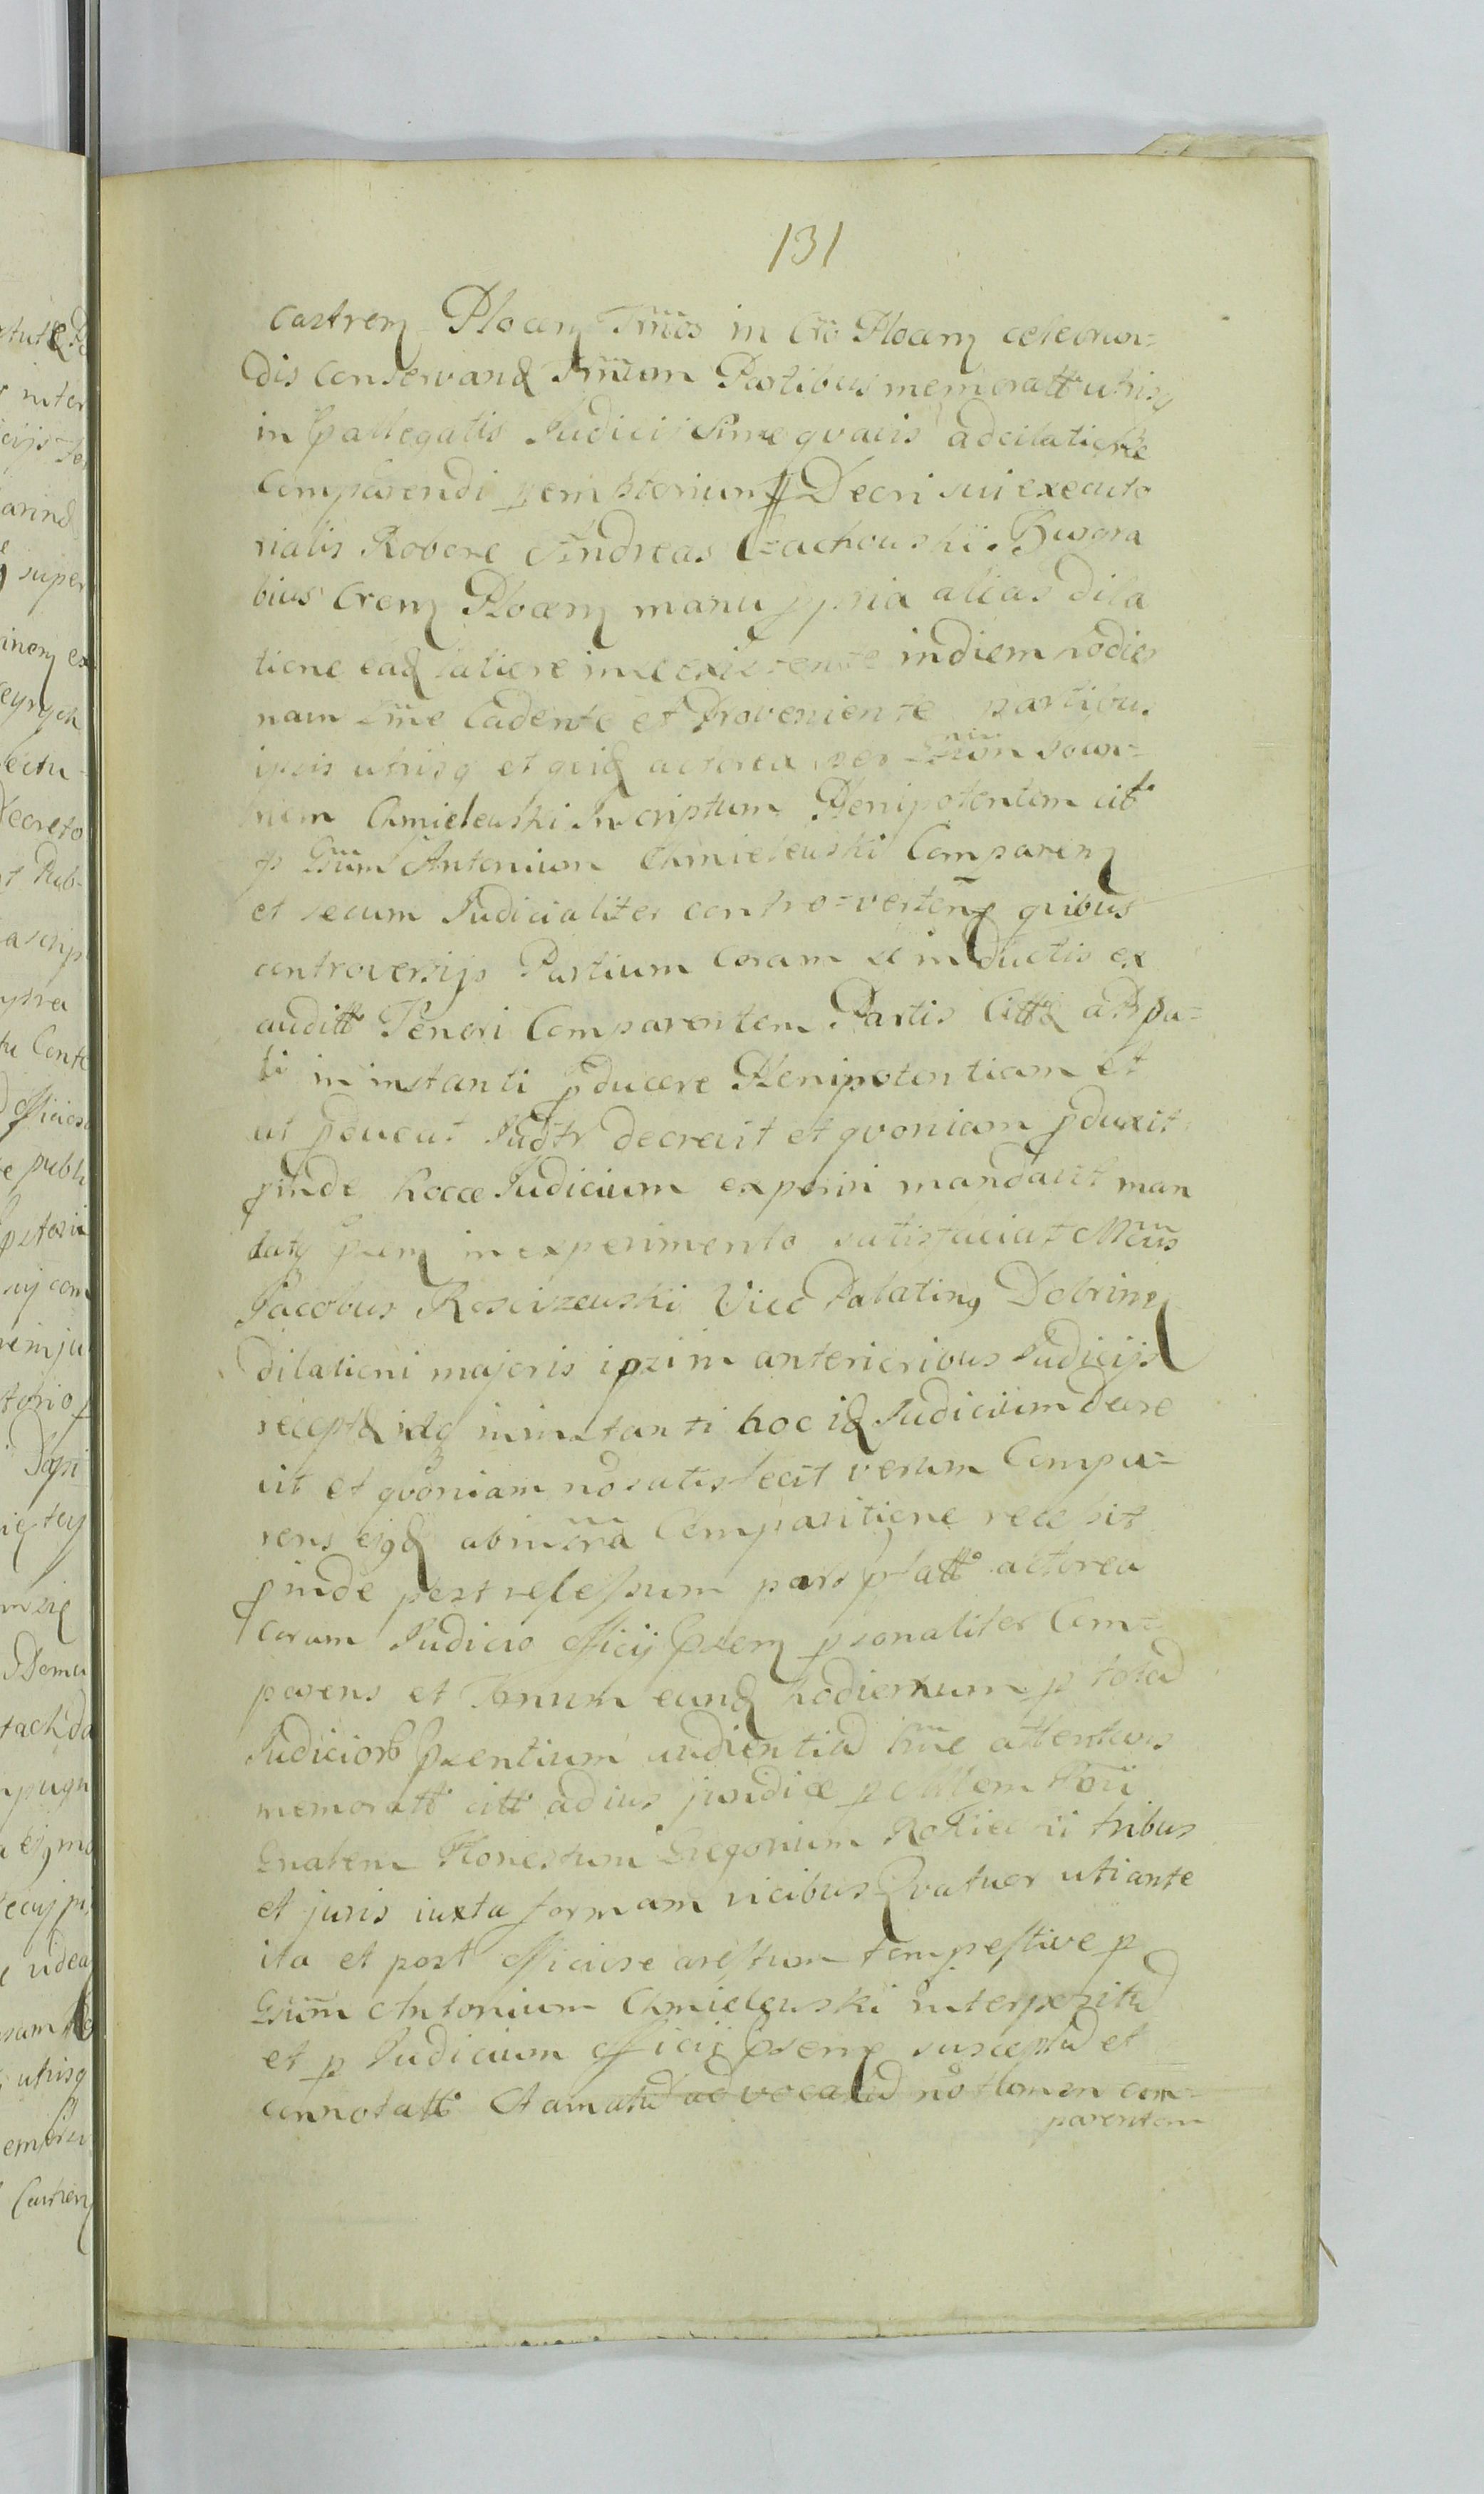 131
Castrem Plocem Tmos in Cro Plocem celebran=
dis conservand Tmum Partibus memoratt utrisq
in pallegatis Judicij sine quavis adcitatione
Comparendi peremptorium Decri sui executo
rialis Robore Andreas Czachowski Burgra
bius Crem Plocem manu ppria alias dila
tione ead ratione existente in diem hodier
nam Tme Cadente et Proveniente partibus
ipsis utrisq et quid actorea per Gsum Joan=
nem Chmielewski Inscriptum Plenipotentem citt
p Gsum Antonium Chmielewski Comparen
et secum Judicialiter contro=verten quibus
controversijs Partium coram se inductis ex
auditt Teneri Comparentem Partis Citt
ti in instanti pducere Plenipotentiam et
ut pducat Judtr decrevit et quoniam pduxit
pinde hocce Judicium experiri mandavit man
datq psem in experimento satisfaciat Mcus
Jacobus Rosciszewski Vice Palatinq Dobrinen
dilationi majoris ipsi in anterioribus Judicijs
recept idq in instanti hoc id Judicium decre
vit et quoniam no satisfecit verum Compa=
rens ejqd ab Comparitione recessit
pinde post recessum pars platt actorea
Coram Judicio officij psem psonaliter Com=
parens et Tmum eund hodiernum p totad
Judicior psentium audientiad Tme attentans
memoratt citt ad ius juridice p Mlem Tri
Gnalem Honestum Gregorium tribus
et juris iuxta formam vicibus Quatuor uti ante
ita et post officiose arestum tempestive p
Gsum Antonium Chmielewski interpositud
et p Judicium officij psens susceptud et
connotatt Clamatud ad vocatud no tamen com=
parentem